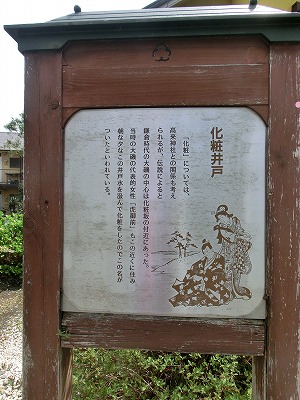 化粧井戸
「化粧」については、
高来神社との関係も考え
られるが、伝説によると
鎌倉時代の大磯の中心は化粧坂の付近にあった。
当時の大磯の代表的女性『虎御前』もこの近くに住み
朝な夕なこの井戸水を汲んで化粧をしたのでこの名が
ついたといわれている。